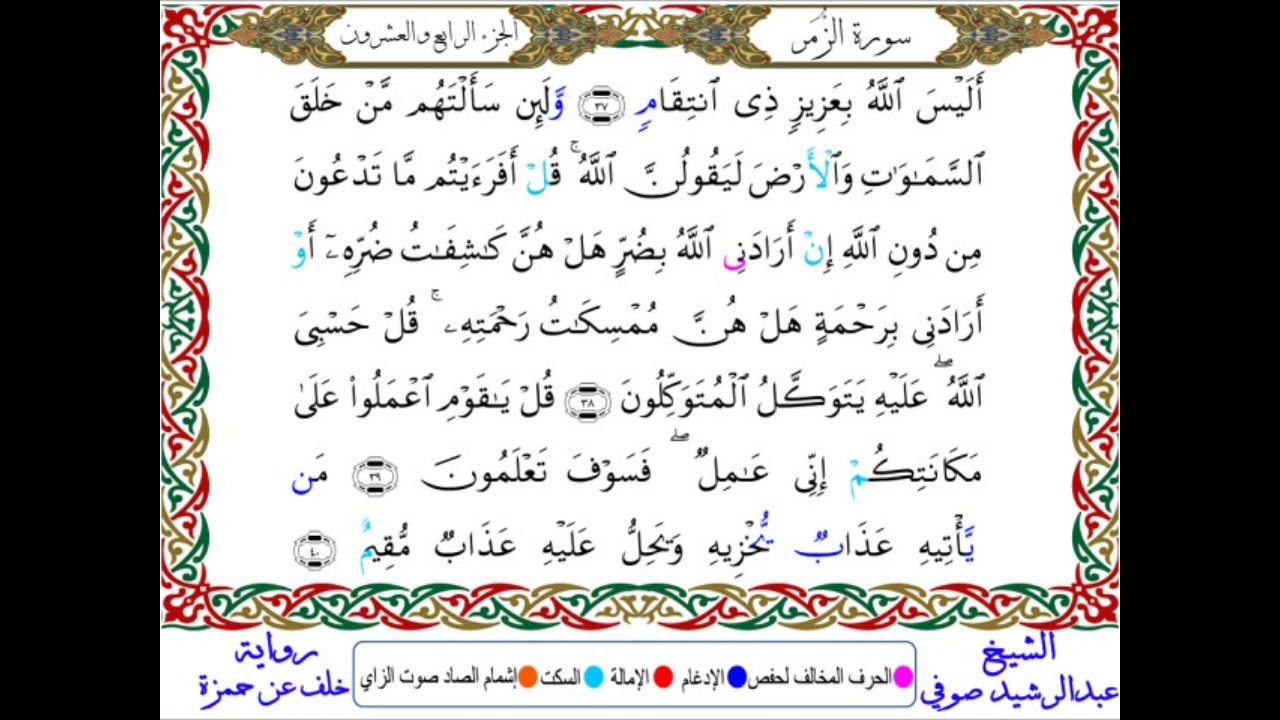 سورة الزُّمَر
الجزء الرابع والعشرون
أَلَيْسَ ٱللَّهُ بِعَزِيزٍ ذِى ٱنتِقَامٍ ٣٧ وَّلَئِن سَأَلْتَهُم مَّنْ خَلَقَ
ٱلسَّمَـٰوَٰتِ وَٱلْأَرْضَ لَيَقُولُنَّ ٱللَّهُ ۚ قُلْ أَفَرَءَيْتُم مَّا تَدْعُونَ
مِن دُونِ ٱللَّهِ إِنْ أَرَادَنِى ٱللَّهُ بِضُرٍّ هَلْ هُنَّ كَـٰشِفَـٰتُ ضُرِّهِۦٓ أَوْ
أَرَادَنِى بِرَحْمَةٍ هَلْ هُنَّ مُمْسِكَـٰتُ رَحْمَتِهِۦ ۚ قُلْ حَسْبِىَ
ٱللَّهُ ۖ عَلَيْهِ يَتَوَكَّلُ ٱلْمُتَوَكِّلُونَ ٣٨ قُلْ يَـٰقَوْمِ ٱعْمَلُوا۟ عَلَىٰ
مَكَانَتِكُمْ إِنِّى عَـٰمِلٌ ۖ فَسَوْفَ تَعْلَمُونَ ٣٩ مَن
يَّأْتِيهِ عَذَابٌ يُّخْزِيهِ وَيَحِلُّ عَلَيْهِ عَذَابٌ مُّقِيمٌ ٤٠
الشيخ
عبدالرشيد صوفي
الحرف المخالف لحفص الإدغام الإمالة السكت إشمام الصاد صوت الزاي
رواية
خلف عن حمزة